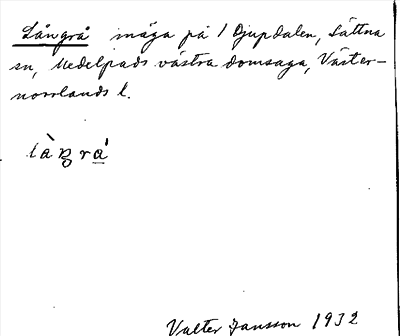 Långrå mäga på 1 Djupdalen, Sättna
sn, Medelpads västra domsaga, Väster-
norrlands l.
Valter Jansson 1932